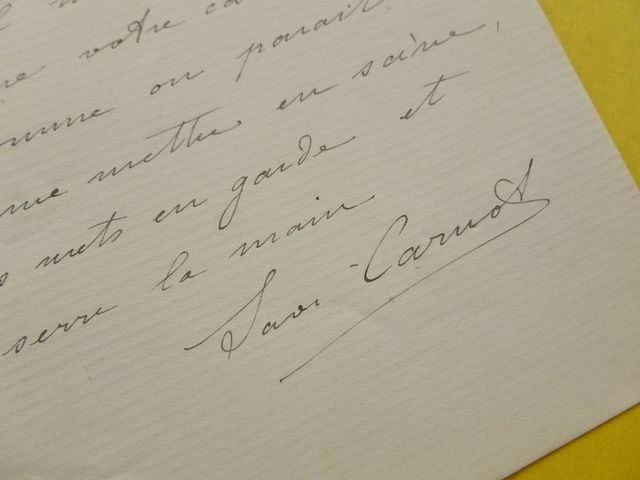 votre
comme on parait
me mettre en scène,
mets en garde et
serre la main
Sadi-Carnot